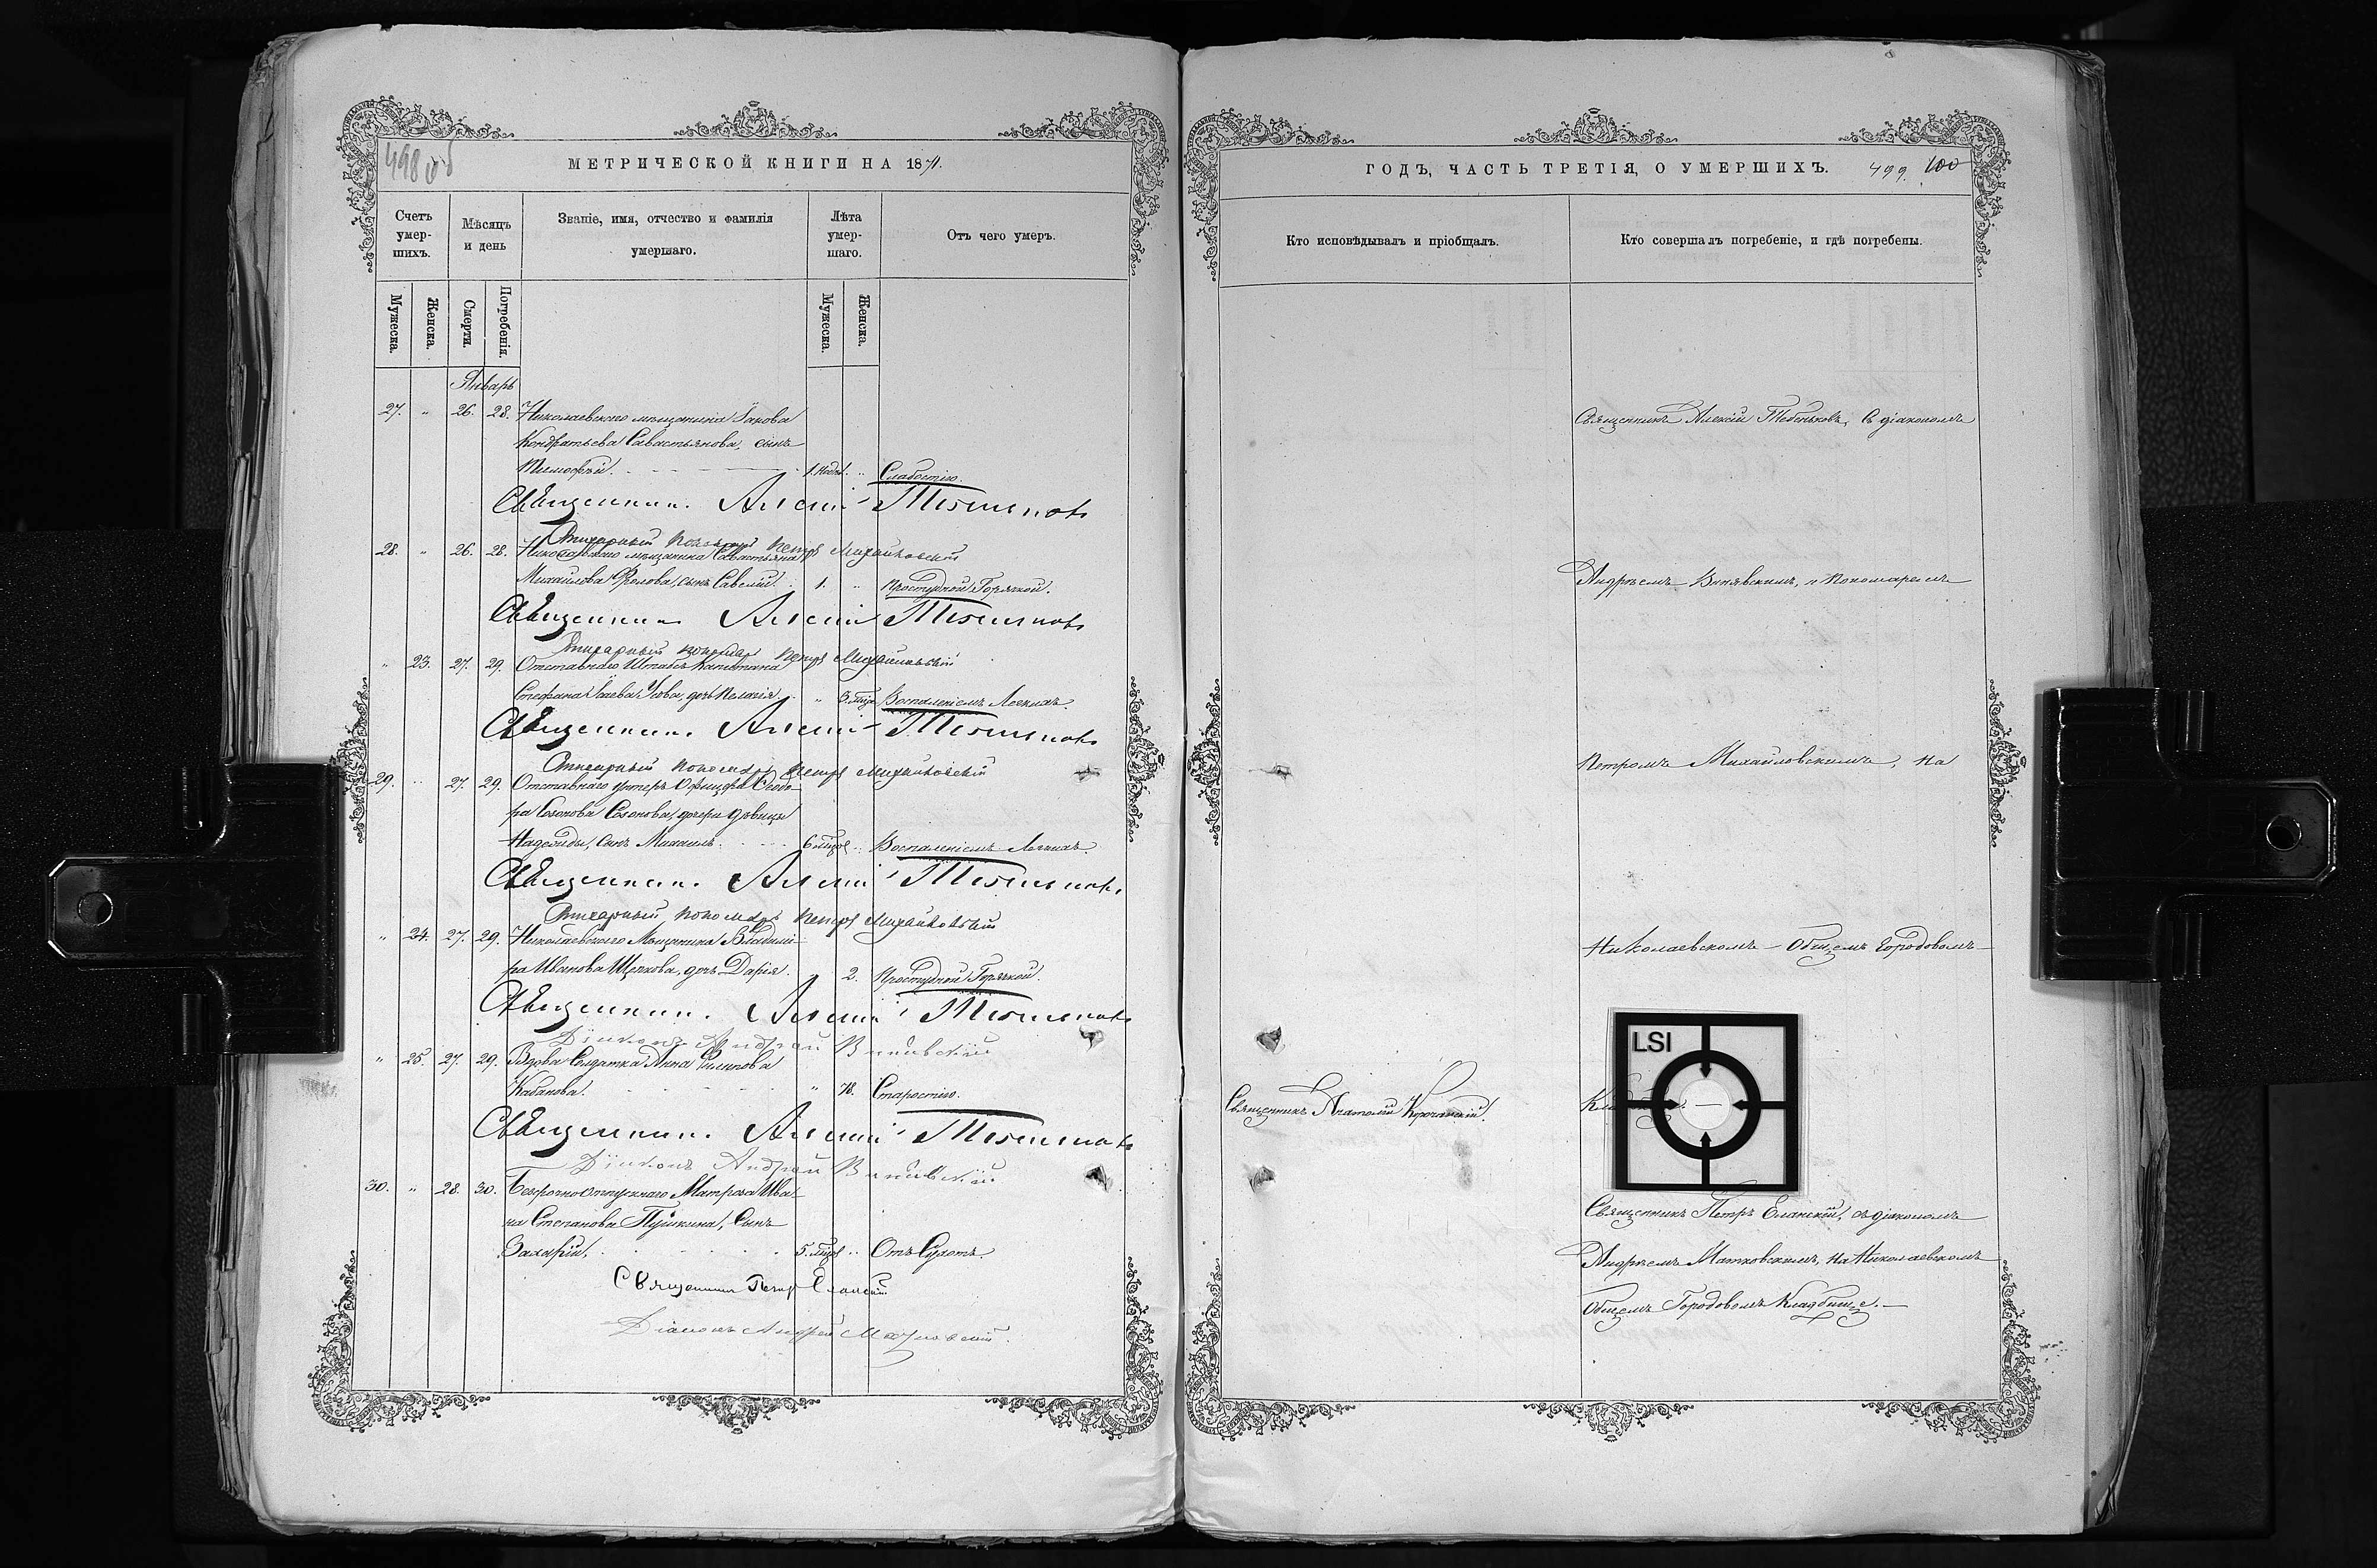 498 об
МЕТРИЧЕСКОЙ КНИГИ НА 1871.
Счетъ умершихъ.
Мѣсяцъ и день
Званіе, имя, отчество и фамилія умершаго.
Лѣта умершаго.
Отъ чего умеръ.
Мужеска.
Женска.
Смерти.
Погребенія.
Мужеска.
Женска.
Январь
27. " 26. 28. Николаевскаго мѣщанина Іакова
Кондратьева Савастьянова, сынъ
Тимофей. 1. " Слабостію.
Священникъ Алексій Тебеньковъ
Стихарный пономарь Петръ Михайловскій
28. " 26. 28. Николаевскаго мѣщанина Савастьяна
Михайлова Фролова, сынъ Савелій. 1. " Простудной Горячкой.
Священникъ Алексій Тебеньковъ
Стихарный пономарь Петръ Михайловскій
" 23. 27. 29. Отставнаго Штабсъ Капитана
Стефана Усова, дочь Пелагія. " Воспаленіемъ Легкихъ.
Священникъ Алексій Тебеньковъ
Стихарный пономарь Петръ Михайловскій
29. " 27. 29. Отставнаго унтеръ Офицера Ѳеодо-
ра Созонова Созонова, дочери дѣвицы
Надежды, сынъ Михаилъ. 6 мѣс. " Воспаленіемъ Легкихъ.
Священникъ Алексій Тебеньковъ
Стихарный пономарь Петръ Михайловскій
" 24. 27. 29. Николаевскаго Мѣщанина Владимі-
ра Иванова Щепкова, дочь Дарія. " 2. Простудной Горячкой.
Священникъ Алексій Тебеньковъ
Діаконъ Андрей
" 25. 27. 29. Вдова Солдатка Анна Филипова
Кабанова. " 78. Старостію.
Священникъ Алексій Тебеньковъ
Діаконъ Андрей
30. " 28. 30. Безсрочноотпускнаго Матроза Ива-
на Степанова Пушкина, Сынъ
Захарій. 5. мѣс. " Отъ Сухотъ.
Священникъ Петръ Еланскій
Діаконъ Андрей Матковскій.
ГОДЪ, ЧАСТЬ ТРЕТІЯ, О УМЕРШИХЪ.
499. 100
Кто исповѣдывалъ и пріобщалъ.
Кто совершалъ погребеніе, и гдѣ погребены.
Священникъ Алексій Тебеньковъ, съ діакономъ
Андреемъ и пономаремъ
Петромъ Михайловскимъ, на
Николаевскомъ Общемъ Городовомъ
Священникъ Анатолій
LSI
Священникъ Петръ Еланскій, съ діакономъ
Андреемъ Матковскимъ, на Николаевскомъ
Общемъ Городовомъ Кладбище.